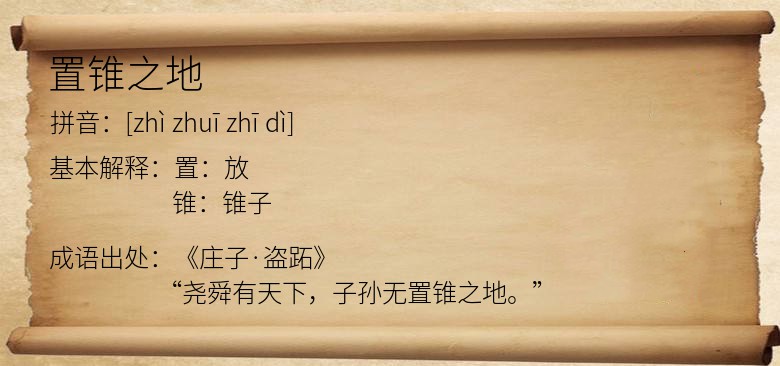 置锥之地
拼音：[zhì zhuī zhī dì]
基本解释：置：放
锥：锥子
成语出处：《庄子·盗跖》
“尧舜有天下，子孙无置锥之地。”